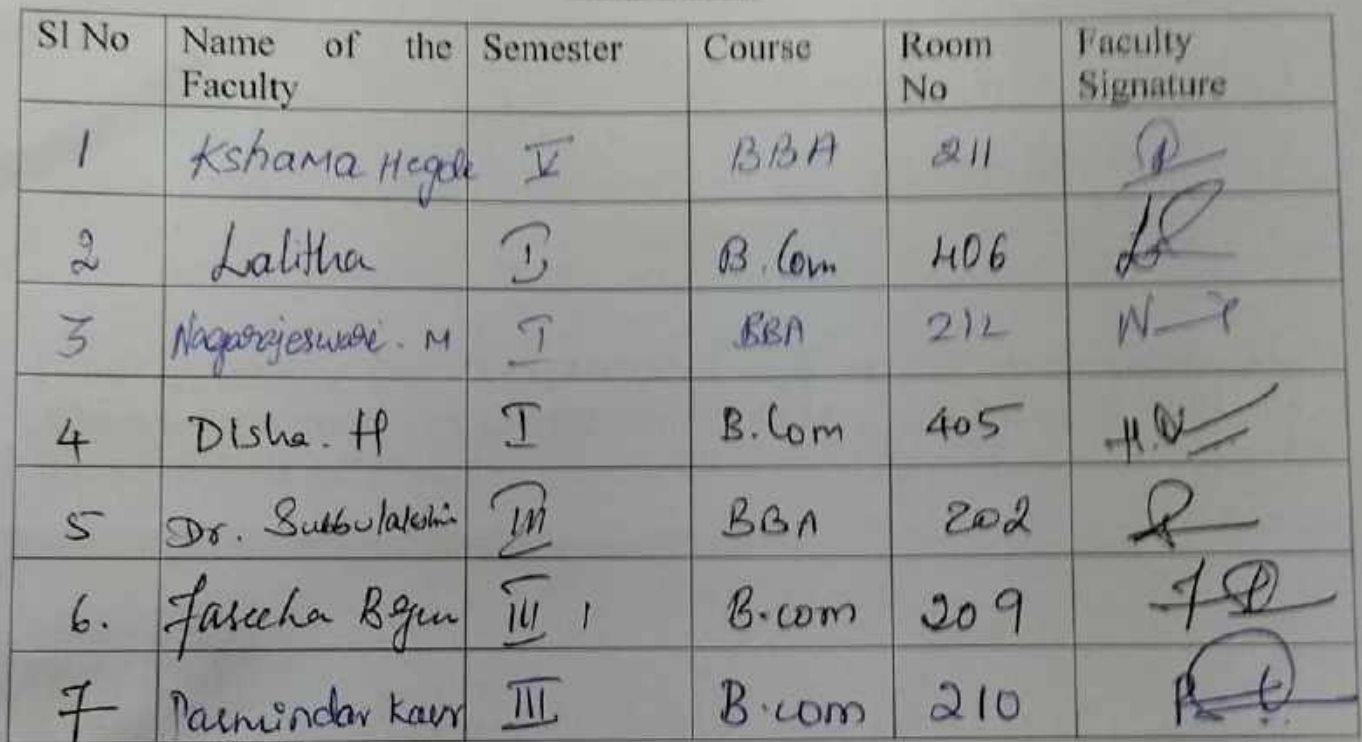 Sl No Name of the Faculty Semester Course Room No Faculty Signature
1 Kshama Hegde V BBA 211
2 Lalitha I B.Com 406
3 Nagarajeswari. M I BBA 212
4 Disha. H I B.Com 405
5 Dr. Subbulakshmi III BBA 202
6. Faseeha Begum III 1 B.com 209
7 Parmindar Kaur III B.com 210